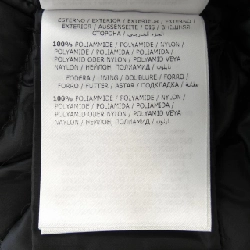 ESTERNO / EXTERIOR / EXTÉRIEUR /
EXTERIOR / AUSSENSEITE /
СТОРОНА /
100% POLIAMMIDE / POLYAMIDE / NYLON /
POLYAMIDE / POLIAMIDA / POLIAMIDA /
POLYAMID ODER NYLON / POLYAMID VEYA
NAYLON / НЕЙЛОН, ПОЛИАМИД / نايلون
FODERA / LINING / DOUBLURE / FORRO /
FORRO / FUTTER / ASTAR / ПОДКЛАДКА / بطانة
100% POLIAMMIDE / POLYAMIDE / NYLON /
POLYAMIDE / POLIAMIDA / POLIAMIDA /
POLYAMID ODER NYLON / POLYAMID VEYA
NAYLON / НЕЙЛОН, ПОЛИАМИД / نايلون